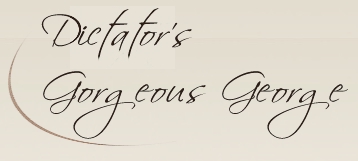 Dictator's
Gorgeous George